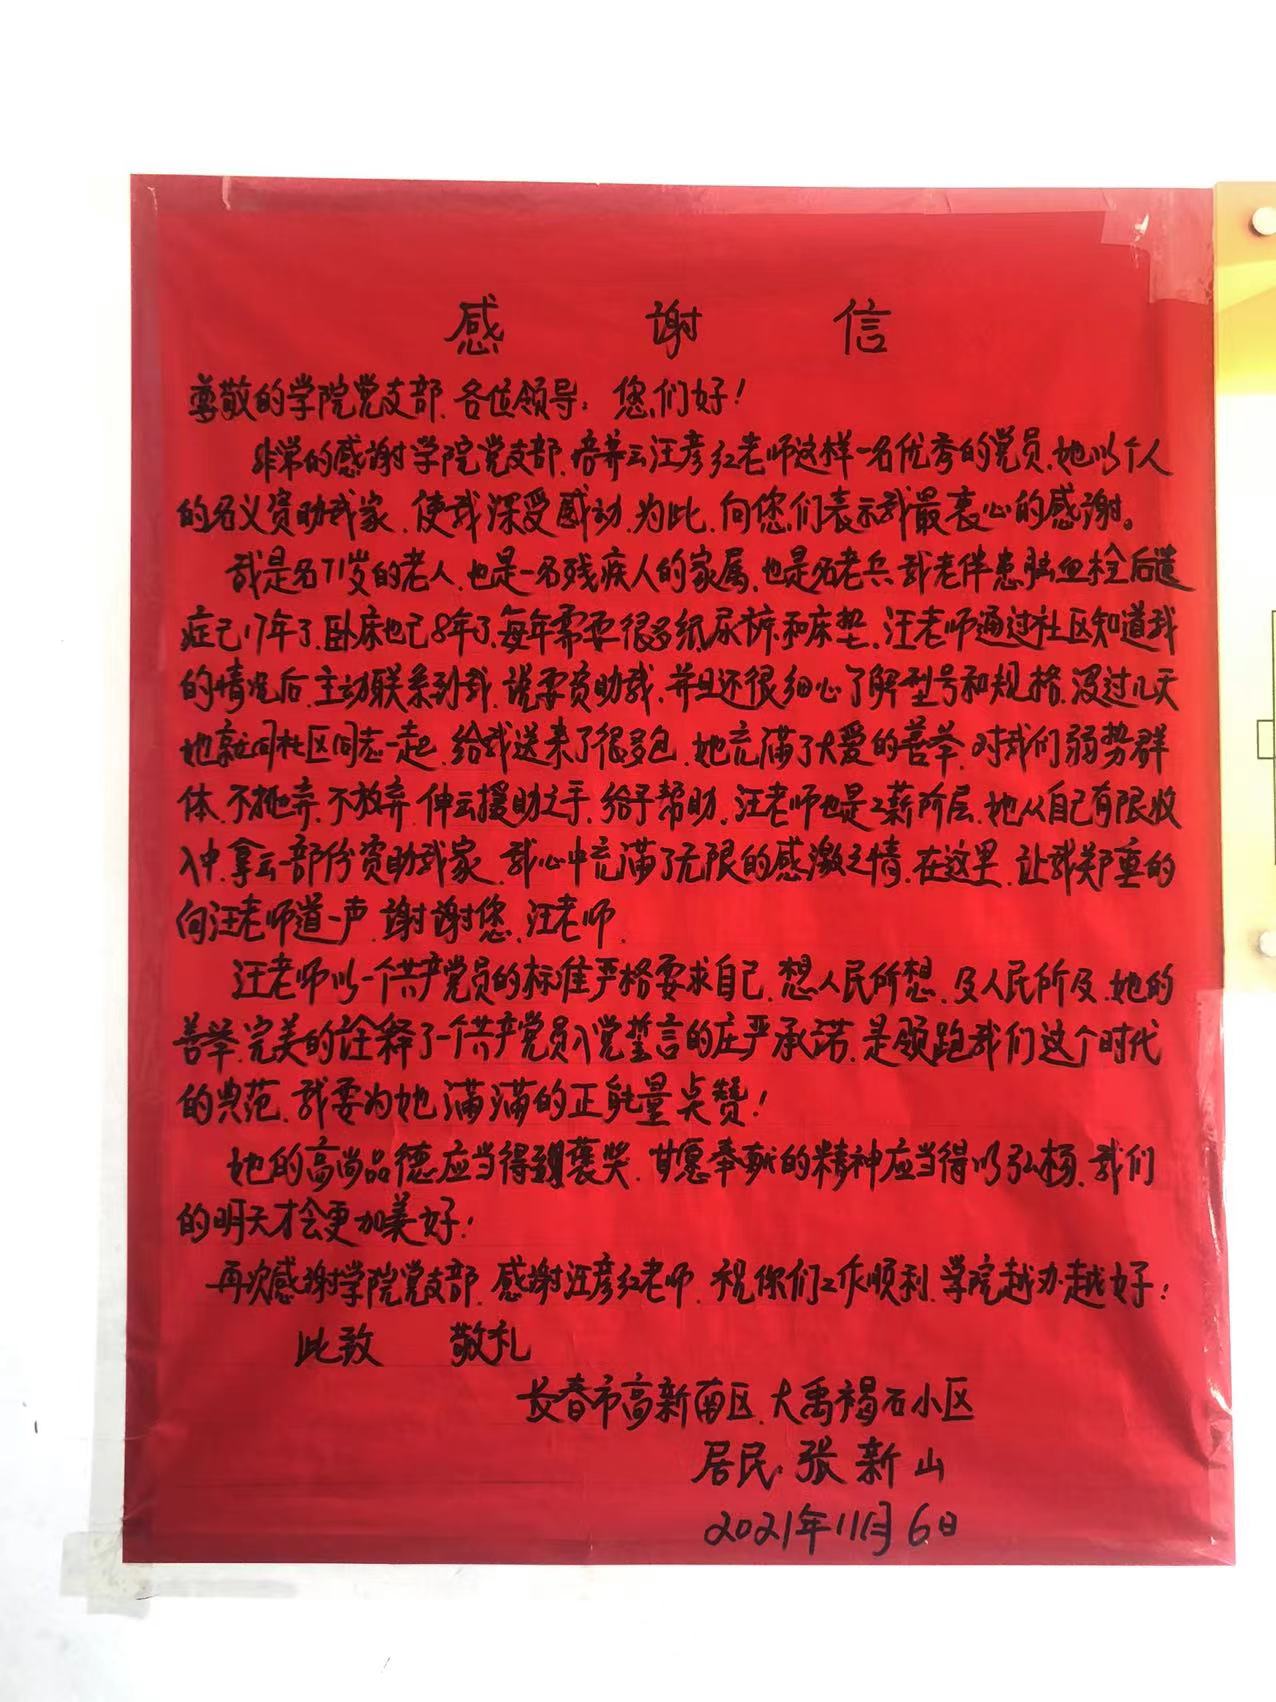 感谢信
尊敬的学院党支部、各位领导：您们好！
非常的感谢学院党支部、培养出汪彦红老师这样一名优秀的党员、她以个人
的名义资助我家、使我深受感动、为此、向您们表示我最衷心的感谢。
我是名71岁的老人、也是一名残疾人的家属、也是名老兵、我老伴患脑血栓后遗
症已17年了、卧床也已8年了、每年需要很多纸尿裤和床垫、汪老师通过社区知道我
的情况后、主动联系到我、说要资助我、并且还很细心了解型号和规格、没过几天
她就同社区同志一起、给我送来了很多包、她充满了大爱的善举、对我们弱势群
体、不抛弃、不放弃、伸出援助之手、给予帮助、汪老师也是工薪阶层、她从自己有限收
入中、拿出部份资助我家、我心中充满了无限的感激之情、在这里、让我郑重的
向汪老师道一声、谢谢您、汪老师、
汪老师以一个共产党员的标准严格要求自己、想人民所想、及人民所及、她的
善举、完美的诠释了一个共产党员入党誓言的庄严承诺、是领跑我们这个时代
的典范、我要为她满满的正能量点赞！
她的高尚品德应当得到褒奖、甘愿奉献的精神应当得以弘杨、我们
的明天才会更加美好！
再次感谢学院党支部、感谢汪彦红老师、祝你们工作顺利、学院越办越好！
此致 敬礼
长春市高新南区、大禹褐石小区
居民：张新山
2021年11月6日